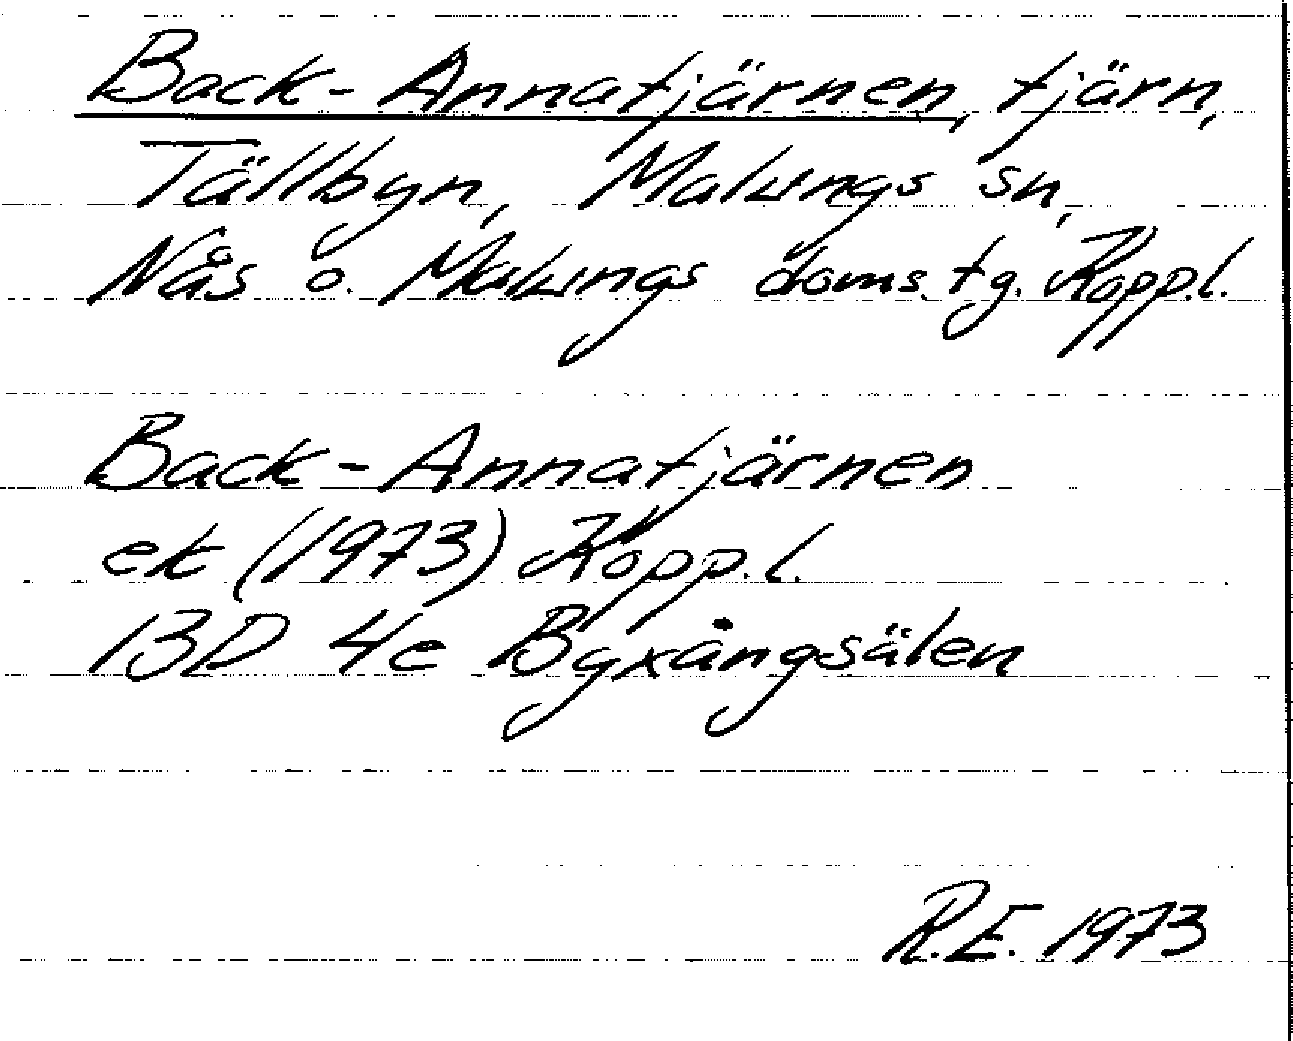 Back-Annatjärnen, tjärn,
Tällbyn, Malungs sn,
Nås o. Malungs doms.tg. Kopp.l.
Back-Annatjärnen
ek (1973) Kopp.l.
13D 4e Byxångsälen
R.E. 1973